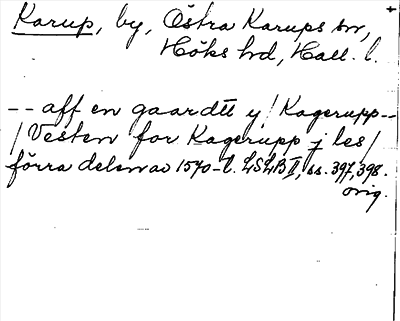 Karup, by, Östra Karups sn,
Höks hd, Hall. l.
-- aff en gaardtt y ! Kagerupp --
/ Vesten for Kagerupp j les /
förra delen av 1570-t. LSLB II, ss. 397, 398.
orig.